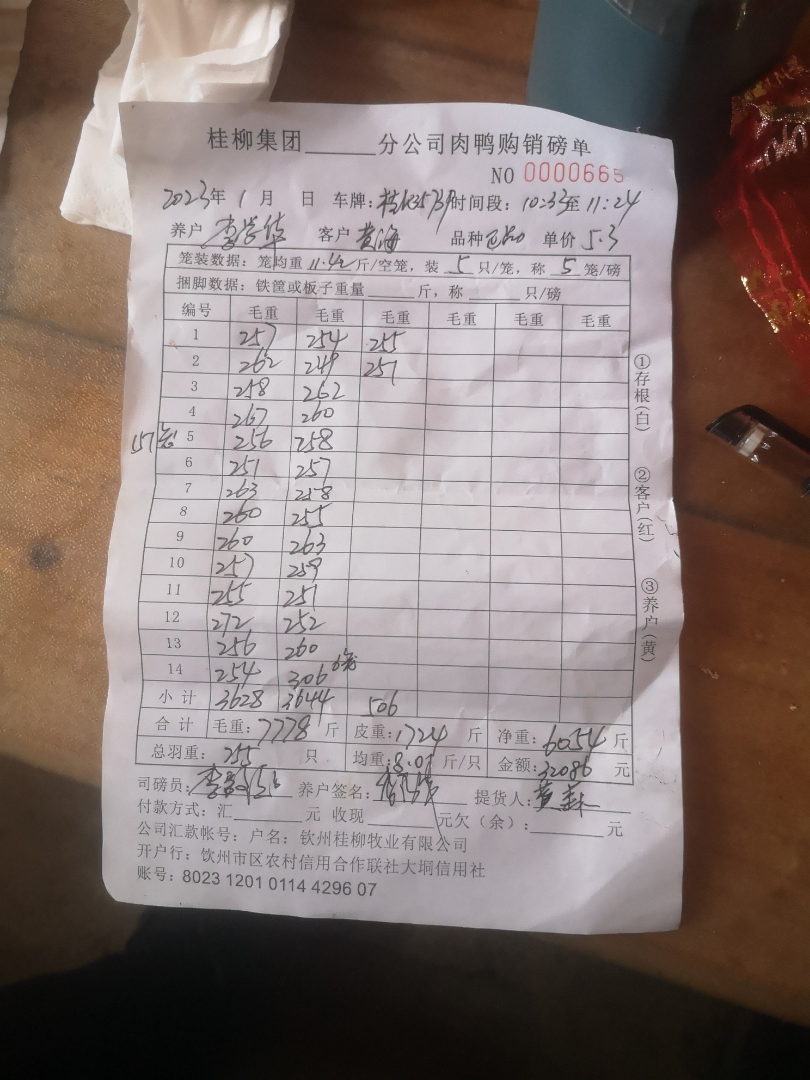 桂柳集团______分公司肉鸭购销磅单
NO 0000665
2023年 1月 日 车牌: 时间段: 10:33至11:24
养户 李学华 客户 黄海 品种 正品 单价 5.3
笼装数据：笼均重 11.42 斤/空笼，装 5 只/笼，称 5 笼/磅
捆脚数据：铁筐或板子重量______斤，称______只/磅
编号 毛重 毛重 毛重 毛重 毛重 毛重
1 257 254 255
2 262 249 251
3 258 262
4 267 260
5 256 258
6 251 257
7 263 258
8 260 255
9 260 263
10 257 259
11 255 251
12 272 252
13 256 260
14 254 306 6笼
小计 3628 3644 506
合计 毛重：7778 斤 皮重：1724 斤 净重：6054 斤
总羽重：755 只 均重：8.01 斤/只 金额：32086 元
司磅员: 养户签名: 提货人:
付款方式：汇______元 收现______元欠（余）：______元
公司汇款帐号：户名：钦州桂柳牧业有限公司
开户行：钦州市区农村信用合作联社大垌信用社
账号：8023 1201 0114 4296 07
151笼
①存根(白)
②客户(红)
③养户(黄)